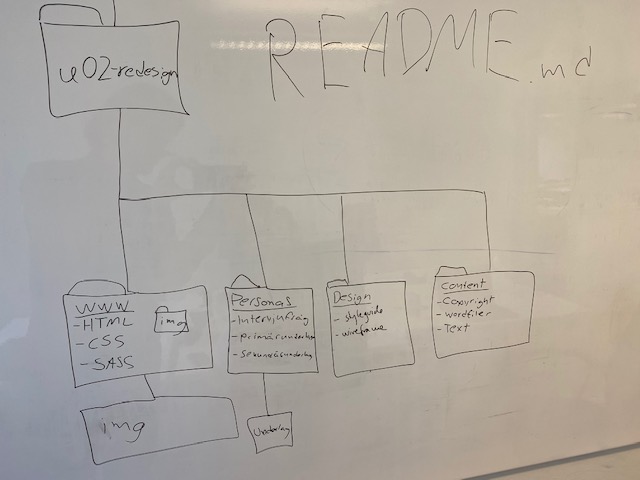 u02-redesign
README.md
WWW
-HTML
-CSS
-SASS
img
Personas
-primärunderlag
-sekundärunderlag
Design
- styleguide
- wireframe
Content
-Copyright
-wordfiler
-Text
img
Underlag